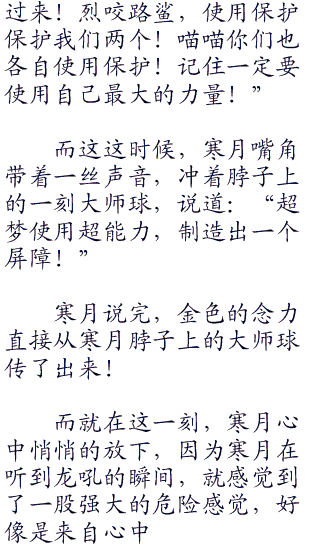 过来！烈咬路鲨，使用保护
保护我们两个！喵喵你们也
各自使用保护！记住一定要
使用自己最大的力量！”
而这这时候，寒月嘴角
带着一丝声音，冲着脖子上
的一刻大师球，说道：“超
梦使用超能力，制造出一个
屏障！”
寒月说完，金色的念力
直接从寒月脖子上的大师球
传了出来！
而就在这一刻，寒月心
中悄悄的放下，因为寒月在
听到龙吼的瞬间，就感觉到
了一股强大的危险感觉，好
像是来自心中